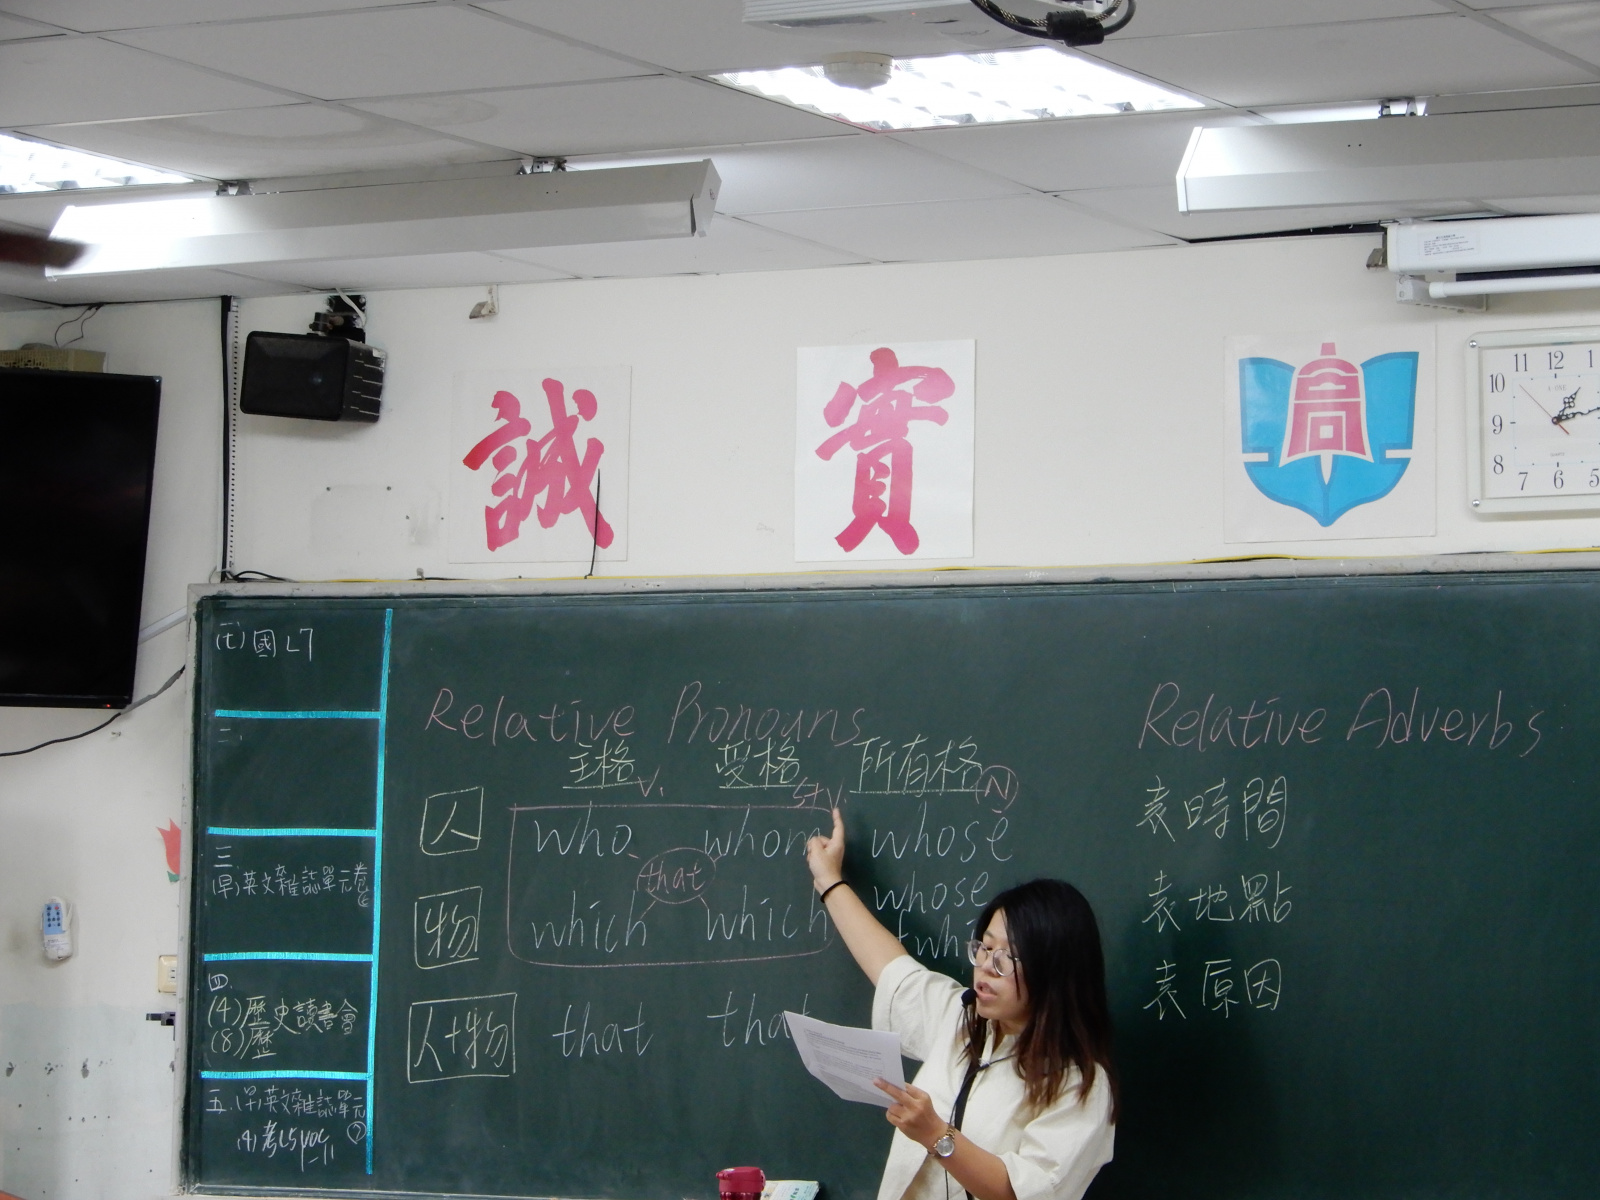 誠 實
高
11 12 1
10
9
8
7 6 5
(七)國L7
二.
三
(早)英文雜誌單元卷
四.
(4)歷史讀書會
(8)歷
五.(早)英文雜誌單元
(4)考L5
Relative Pronouns
主格 受格 所有格
V. S+V. (N)
人 who whom whose
that
物 which which whose
人+物 that that
Relative Adverbs
表時間
表地點
表原因